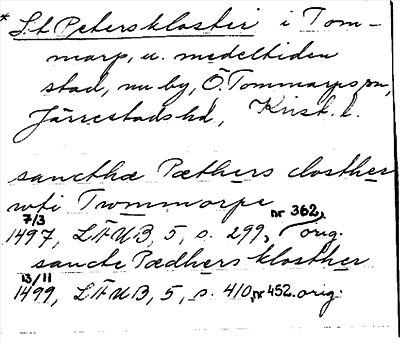 * S:t Peterskloster i Tom-
marp, u. medeltiden
stad, nu by, Ö. Tommarps sn,
Järrestads hd, Krist. l.
sancthæ Pæthers closther
wti Twmmorpe
7/3 1497, LÄUB, 5, s. 299, nr 362, orig.
sancte Pædhers klosther
13/11 1499, LÄUB, 5, s. 410, nr 452. orig.